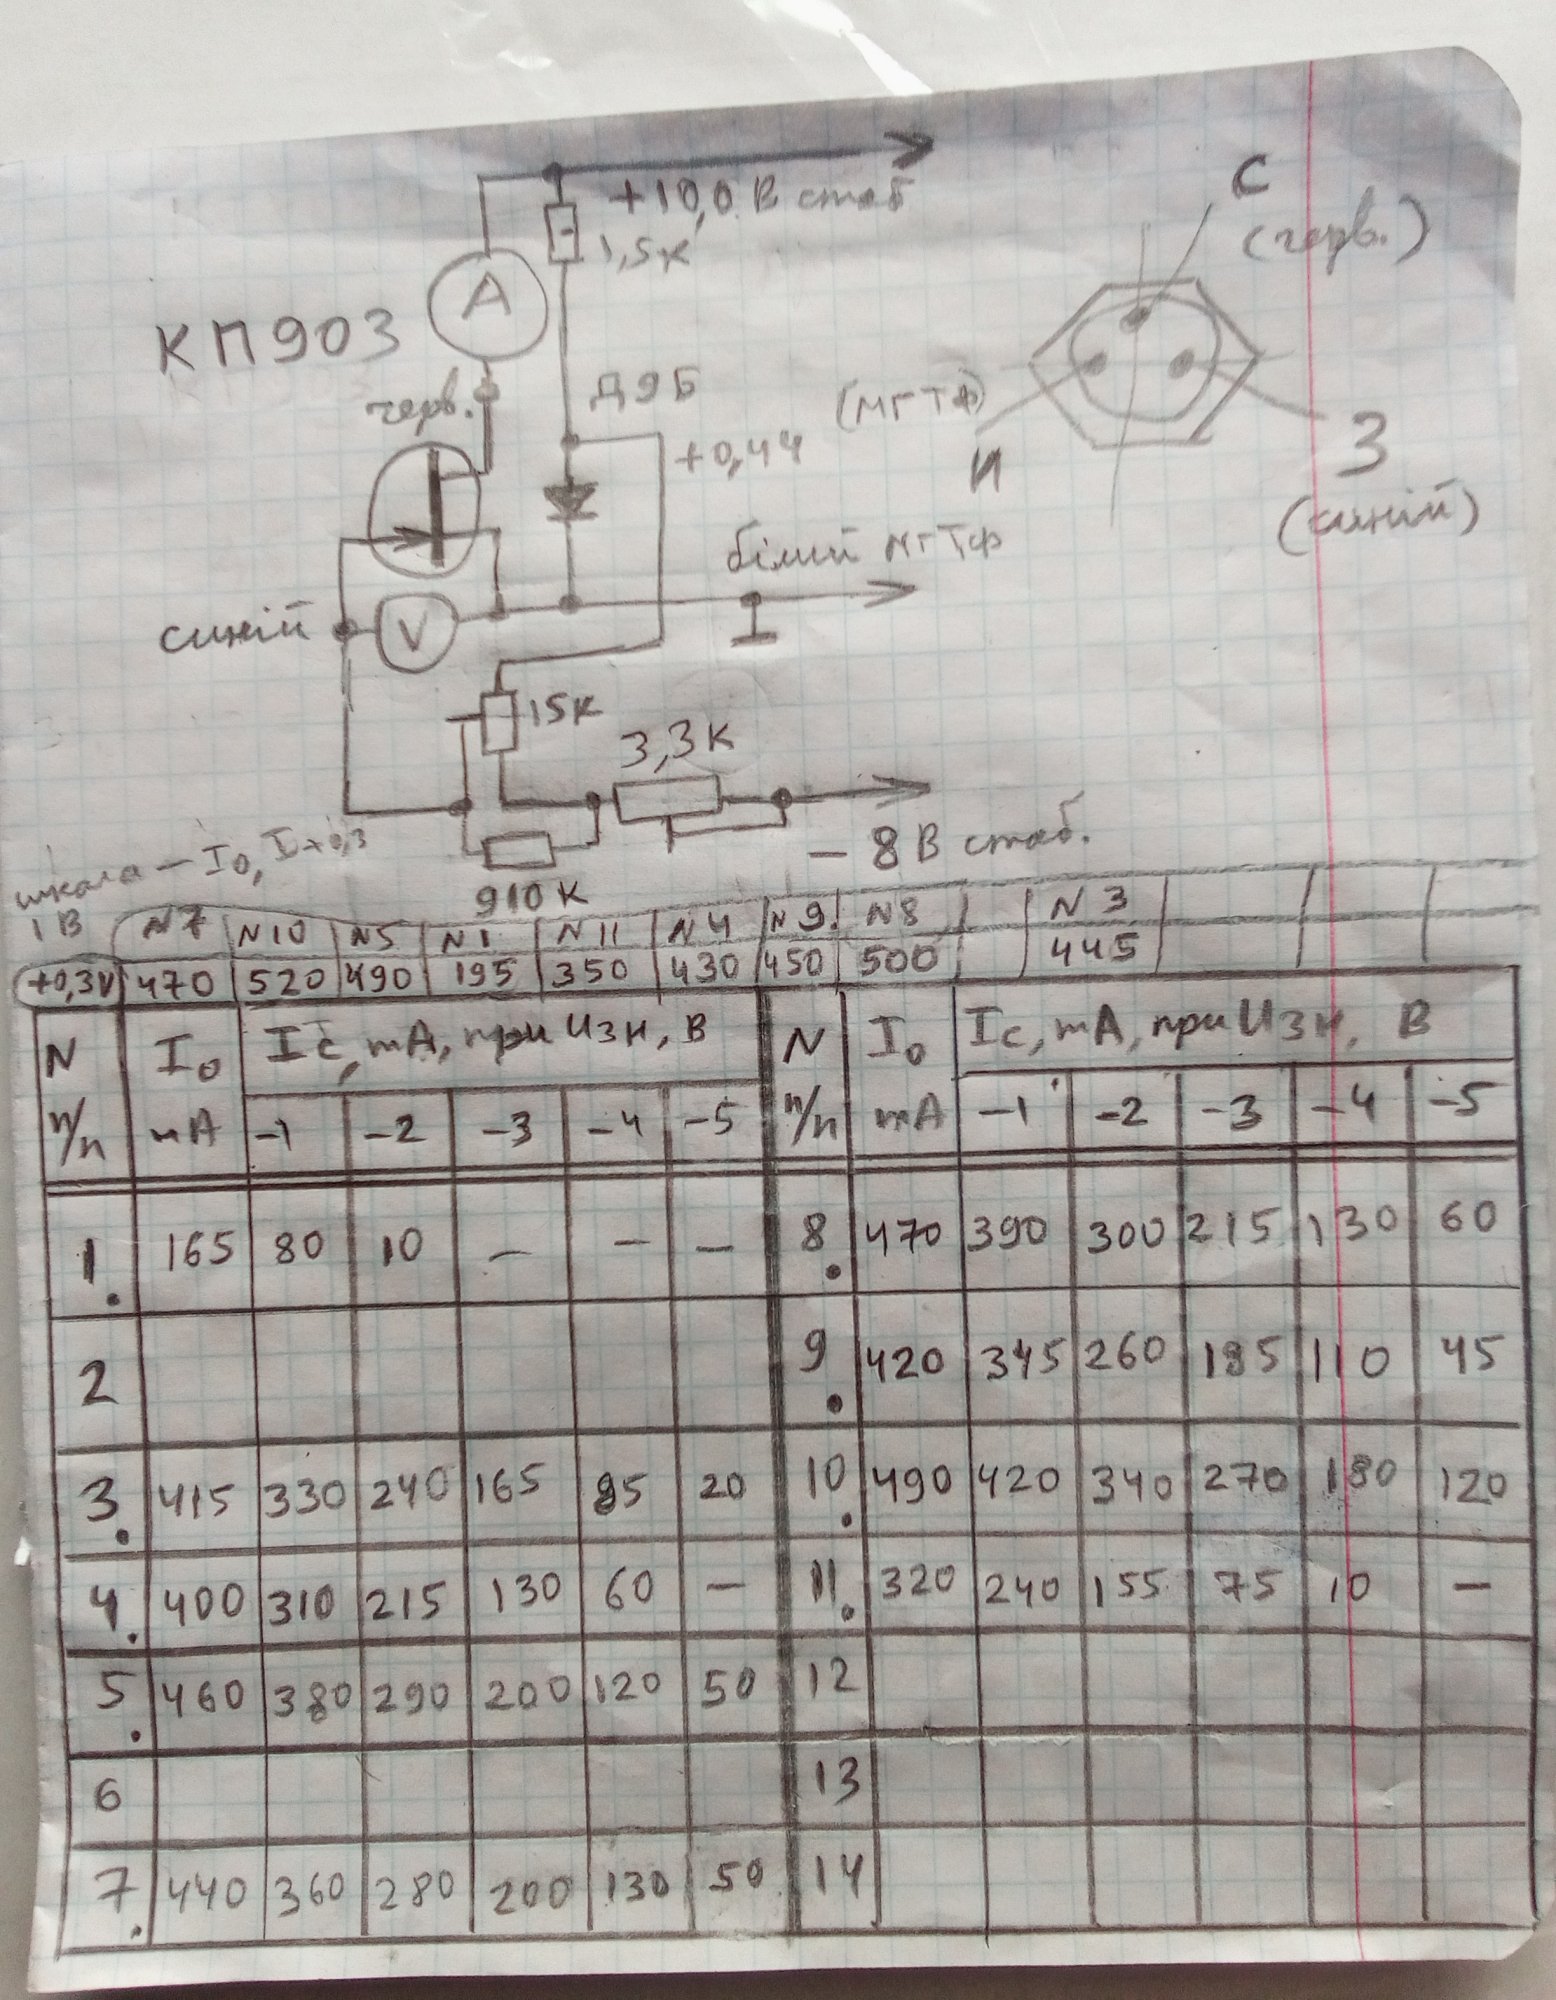 С
(черв.)
+10,0 В стаб
1,5к
А
КП903
черв.
Д9Б
(МГТФ)
И
З
(синій)
+0,44
білий МГТФ
синій
V
15к
3,3к
- 8 В стаб.
910к
шкала - I0, I+0,3
1 В
N7 N10 N5 N1 N11 N4 N9 N8 N3
+0,3V 470 520 490 195 350 430 450 500 445
N п/п I0 mA Iс, mA, при Uзи, В N п/п I0 mA Iс, mA, при Uзи, В
-1 -2 -3 -4 -5 -1 -2 -3 -4 -5
1. 165 80 10 — — — 8. 470 390 300 215 130 60
2 9. 420 345 260 185 110 45
3. 415 330 240 165 85 20 10. 490 420 340 270 180 120
4. 400 310 215 130 60 — 11. 320 240 155 75 10 —
5. 460 380 290 200 120 50 12
6 13
7. 440 360 280 200 130 50 14